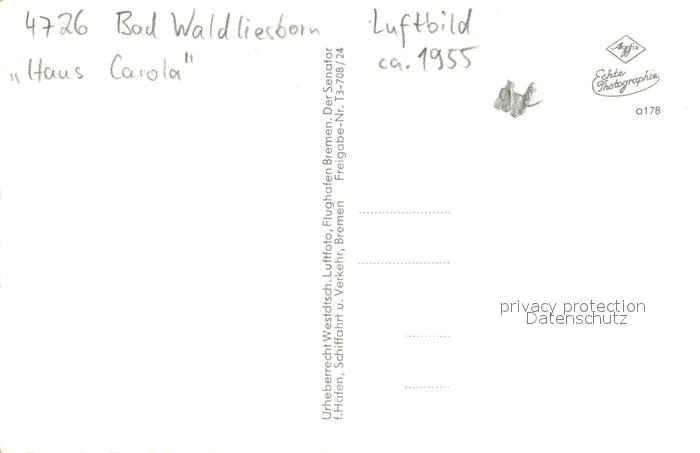 4726 Bad Waldliesborn Luftbild
„Haus Carola" ca. 1955
Agfa
Echte
Photographie
o178
Urheberrecht Westdtsch. Luftfoto, Flughafen Bremen. Der Senator
f. Häfen, Schiffahrt u. Verkehr, Bremen Freigabe-Nr. T3-708/24
privacy protection
Datenschutz